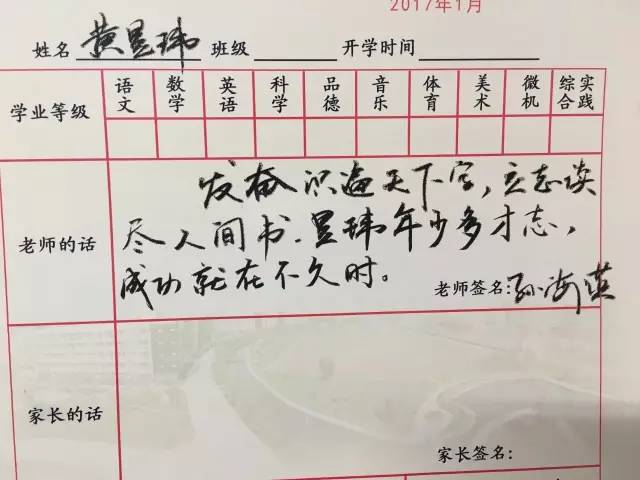 2017年1月
姓名 黄昱玮 班级 开学时间
学业等级 语文 数学 英语 科学 品德 音乐 体育 美术 微机 综合实践
老师的话
发奋识遍天下字,立志读
尽人间书.昱玮年少多才志,
成功就在不久时。
老师签名:孙海英
家长的话
家长签名: